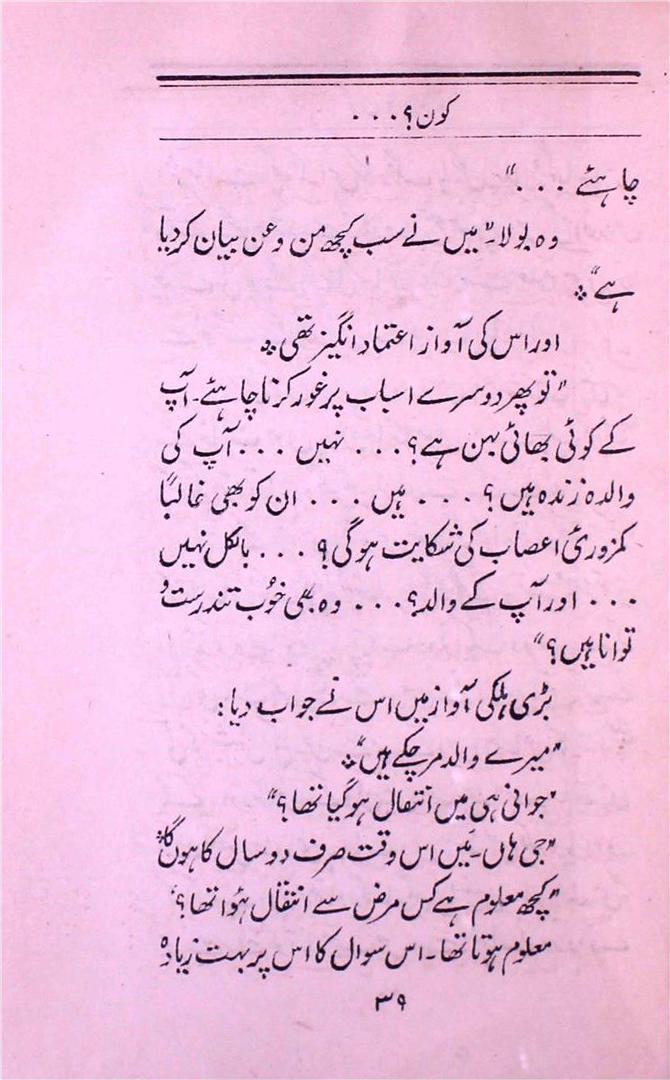 کون؟...
چاہئے ..."
وہ بولا۔ "میں نے سب کچھ من و عن بیان کر دیا
ہے"۔
اور اس کی آواز اعتماد انگیز تھی۔
"تو پھر دوسرے اسباب پر غور کرنا چاہئے۔ آپ
کے کوئی بھائی بہن ہے؟... نہیں ... آپ کی
والدہ زندہ ہیں؟ ... ہیں ... ان کو بھی غالباً
کمزوریٔ اعصاب کی شکایت ہوگی؟ ... بالکل نہیں
... اور آپ کے والد؟... وہ بھی خوُب تندرست و
توانا ہیں؟"
بڑی ہلکی آواز میں اس نے جواب دیا:
"میرے والد مر چکے ہیں"۔
"جوانی ہی میں انتقال ہو گیا تھا؟"
"جی ہاں۔ مَیں اس وقت صرف دو سال کا ہوں گا"۔
"کچھ معلوم ہے کس مرض سے انتقال ہؤا تھا؟"
معلوم ہوتا تھا۔ اس سوال کا اس پر بہت زیادہ
۳۹